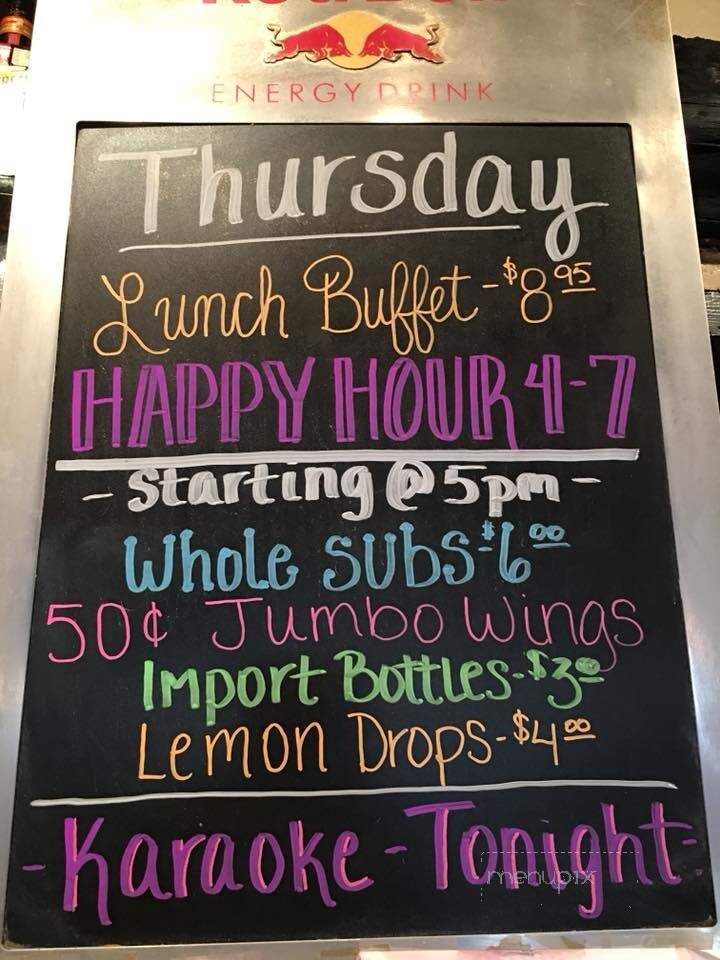 Red Bull
ENERGY DRINK
Thursday
Lunch Buffet - $8 95
HAPPY HOUR 4-7
- Starting @ 5pm -
Whole Subs - $6 00
50¢ Jumbo Wings
Import Bottles - $3 00
Lemon Drops - $4 00
- Karaoke - Tonight -
menupix